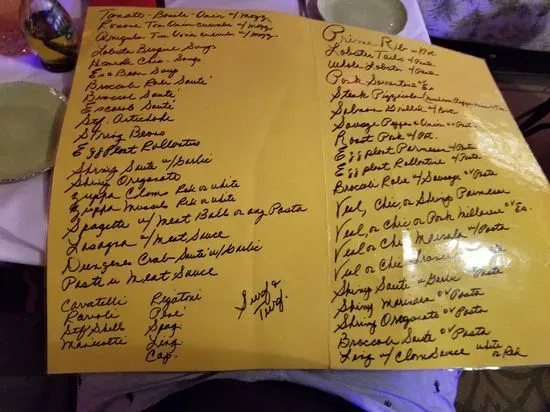 Tomato - Basile - Onin w/ Mozz.
Romano Tom Cucumber w/ Mozz.
Arugula Tom Onin cucumber w/ Mozz.
Lobster Bisque Soup
Noodle Chic. Soup
Es & Bean Soup
Broccoli Robi Sauté
Broccoli Sauté
Escarole Sauté
Stf. Artichoke
String Beans
Egg Plant Rollantine
Shrimp Sauté w/ Garlic
Shrimp Oreganato
Zuppa Clams Red or white
Zuppa Mussels Red or white
Spagette w/ Meat Ball or any Pasta
Lasagna w/ Meat Sauce
Dungenes Crab Sauté w/ Garlic
Pasta w Meat Sauce
Cavatelli Rigatoni
Ravioli Pene
Stf Shell Spag.
Manicotti Ling.
Cap.
Surf & Turf.
Prime Rib w Pot.
Lobster Tails + Pasta
Whole Lobster + Pasta
Pork Sorrentino Ea
Steak Pizziola
Salmon Grilled w/
Sausage Peppers & Onin or Pasta
Roast Pork w/ Pot.
Eggplant Parmesan w/ Pasta
Eggplant Rollantine w/ Pasta
Brocoli Robe w/ Sausage or Pasta
Veal, Chic, or Shrimp Parmesan
Veal, or Chic or Pork Milanese or Ea.
Veal or Chic Marsala w/ Pasta
Veal or Chic
Shrimp Sauté w Garlic or Pasta
Shrimp Marinara or Pasta
Shrimp Oreganato or Pasta
Broccoli Sauté or Pasta
Ling w/ Clam Sauce white or Red